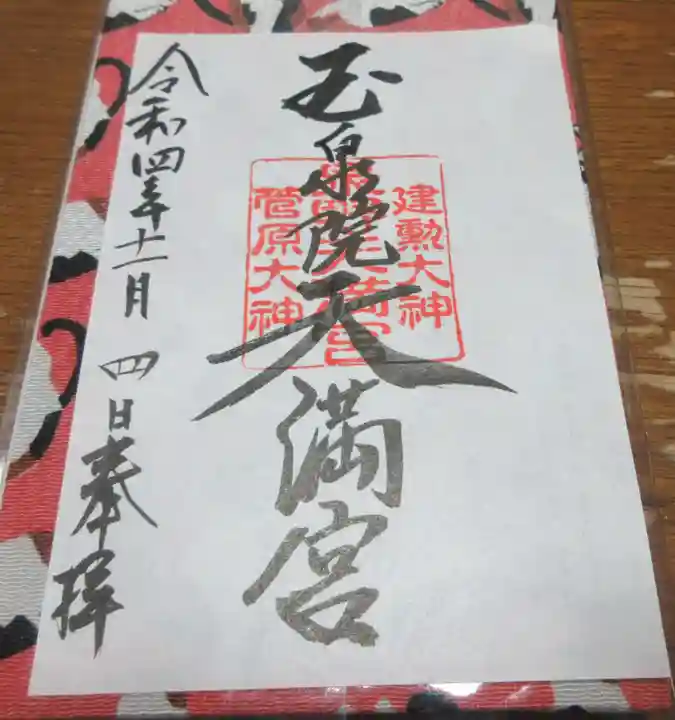 玉泉院天満宮
建勲大神
菅原大神
令和四年十一月
四日奉拝